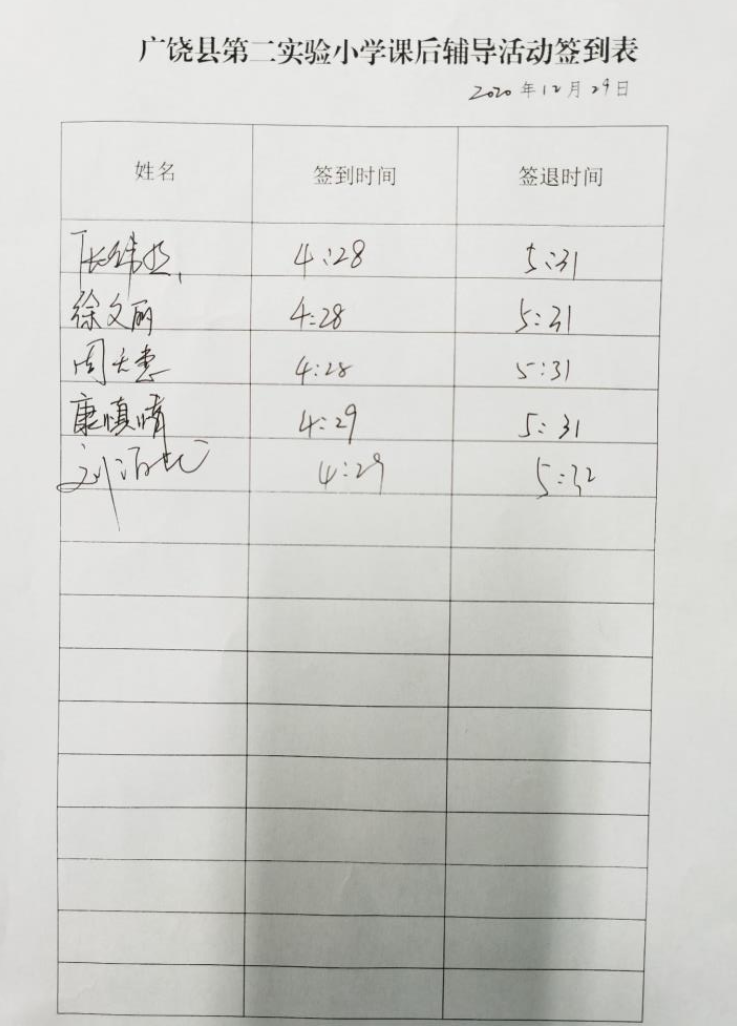 广饶县第二实验小学课后辅导活动签到表
2020年12月29日
姓名 签到时间 签退时间
4:28 5:31
徐文丽 4:28 5:31
周天惠 4:28 5:31
康慎情 4:29 5:31
刘 4:29 5:32